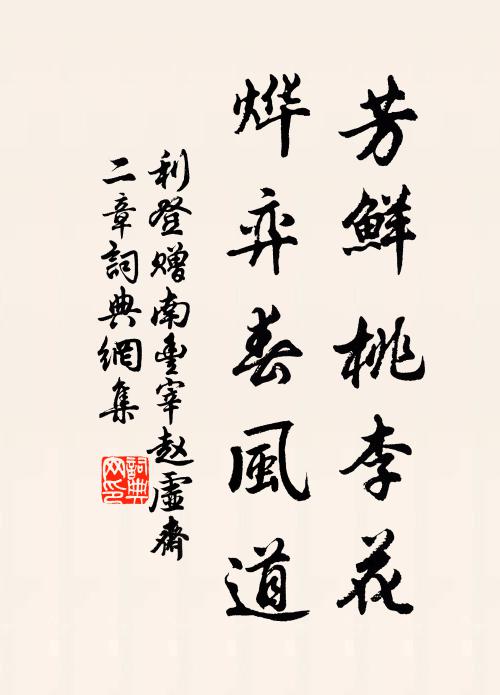 芳鮮桃李花
烨弈春風道
利登贈南豊宰赵虛齋
二章詞典網集
詞典網印